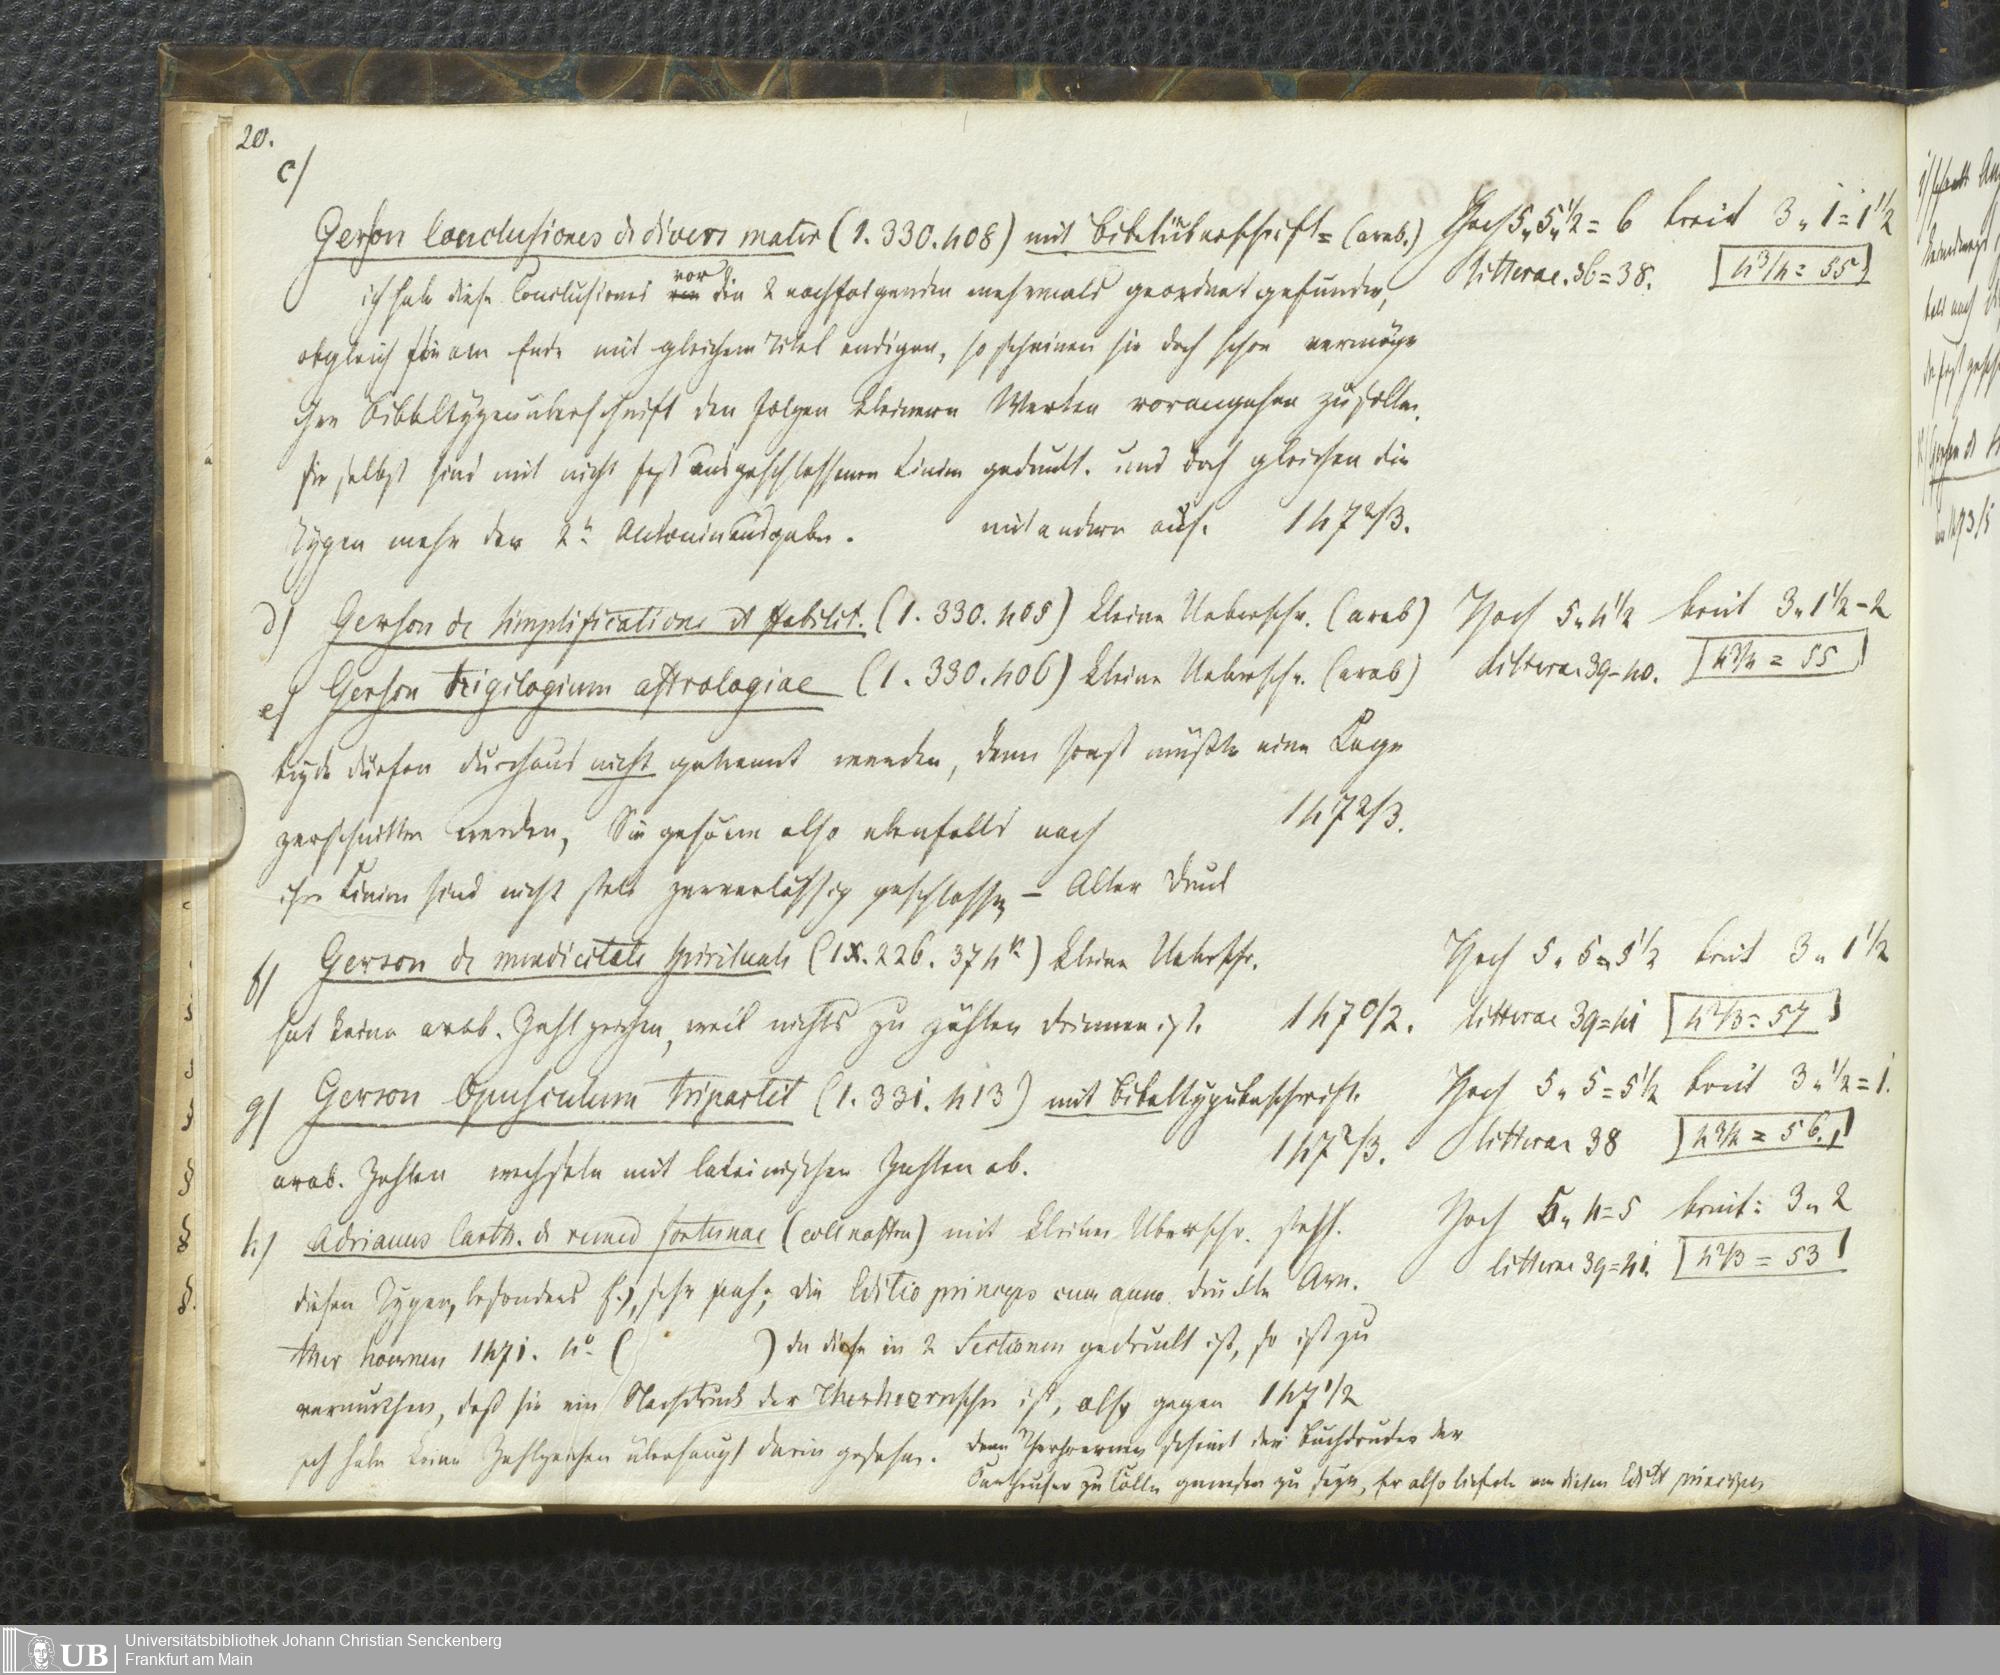 20.
c)
Gerson Conclusiones de divers mater (1. 330. 408) mit Bibelüberschrift = (arab.) Hoch 5„ 5„ 1/2 = 6 breit 3„ 1 = 1 1/2
ich habe diese Conclusiones vor die 2 nachfolgenden mehrmals geordnet gefunden, litterae. 36 = 38. [4 3/4 = 55]
obgleich sie am Ende mit gleichem Titel endigen, so scheinen sie doch schon vermöge
ihrer Bibeltypenüberschrift den folgen kleinern Werken vorangehen zu sollen.
sie selbst sind mit nicht fest ausgeschlossenen Linien gedruckt. und doch gleichen die
Typen mehr der 2n Antoninausgabe. mit andern auf. 147 2/3.
d) Gerson de simplificatione et stabilit. (1. 330. 405) kleine Ueberschr. (arab) Hoch 5„ 4 1/2 breit 3„ 1 1/2 - 2
e) Gerson trigilogium astrologiae (1. 330. 406) kleine Ueberschr. (arab) litterae 39-40. [4 3/4 = 55]
beyde dürfen durchaus nicht getrennt werden, denn sonst müßte eine Lage
zerschnitten werden, Sie gehören also ebenfalls nach 147 2/3.
ihre Linien sind nicht stets zuverlässig geschlossen – Alter Druck
f) Gerson de mendicitate spirituale (1x. 226. 374 k) kleine Ueberschr. Hoch 5„ 5 = 5 1/2 breit 3„ 1 1/2
hat keine arab. Zahlzeichen, weil nichts zu zählen drinnen ist. 147 0/2. litterae 39 = 41 [4 2/3 = 54]
g) Gerson Opusculum tripartit (1. 331. 413) mit Bibeltypüberschrift. Hoch 5„ 5 = 5 1/2 breit 3„ 1/2 = 1.
arab. Zahlen wechseln mit lateinischen Zahlen ab. 147 2/3. litterae 38 [4 3/4 = 56.]
h) Adrianus Carth. de remed fortunae ( ) mit kleiner Uberschr. steht. Hoch 5„ 4 = 5 breit: 3„ 2
diesen Typen, besonders f.), sehr nah; die Editio princeps cum anno druckte Arn. litterae 39 = 41. [4 2/3 = 53]
ther hoernen 1471. 4o. ( ) da diese in 2 Sectionen gedruckt ist, so ist zu
vermuthen, daß sie ein Nachdruck der Therhoernschen ist, also gegen 147 1/2
ich habe keine Zahlzeichen überhaupt darin gesehen. denn Therhoernen scheint der Buchdrucker der
Carthäuser zu Cölln gewesen zu seyn, Er also lieferte von diesen Edit princeps
Universitätsbibliothek Johann Christian Senckenberg
Frankfurt am Main
UB